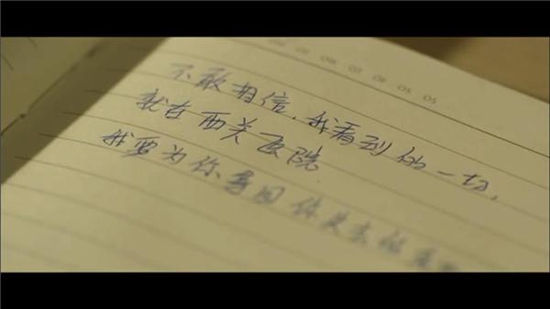 不敢相信，我看到的一切，
就在西关医院
我要为你寻回你失去的